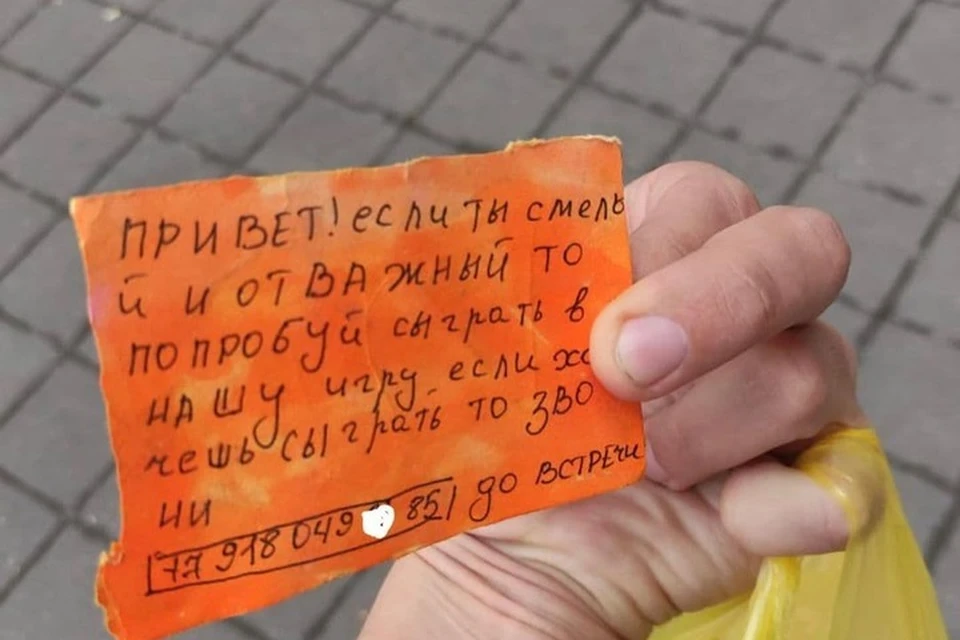 ПРИВЕТ! если ты смелы
й и ОТВАЖНЫЙ ТО
ПОПРОБУЙ сыграть в
НАШУ игру. если хо
чешь сыграть то ЗВО
НИ
77 918 049 85 до ВСТРЕЧИ